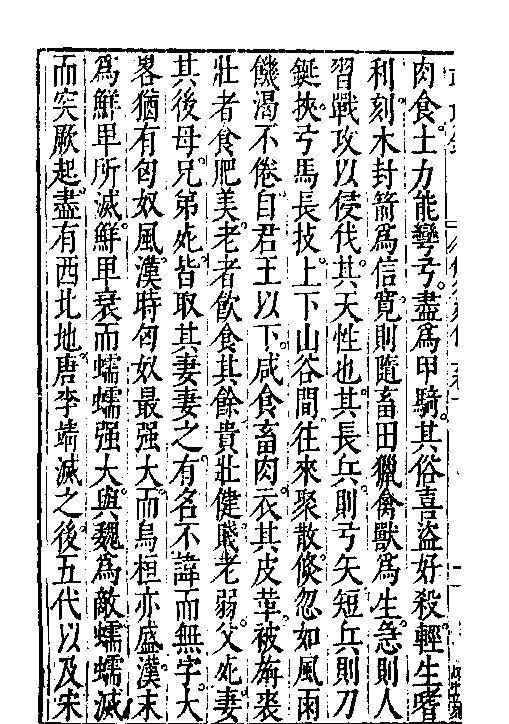 肉食士力能彎弓盡為甲騎其俗喜盜好殺輕生嗜
利刻木封箭為信寛則隨畜田獵禽獸為生急則人
習戰攻以侵伐其天性也其長兵則弓矢短兵則刀
鋋挾弓馬長技上下山谷間往來聚散倏忽如風雨
饑渴不倦自君王以下咸食畜肉衣其皮革被旃裘
壯者食肥美老者飲食其餘貴壯健賤老弱父死妻
其後母兄弟死皆取其妻妻之有名不諱而無字大
畧猶有匈奴風漢時匈奴最强大而烏桓亦盛漢末
為鮮卑所滅鮮卑衰而蠕蠕强大與魏為敵蠕蠕滅
而突厥起盡有西北地唐李靖滅之後五代以及宋